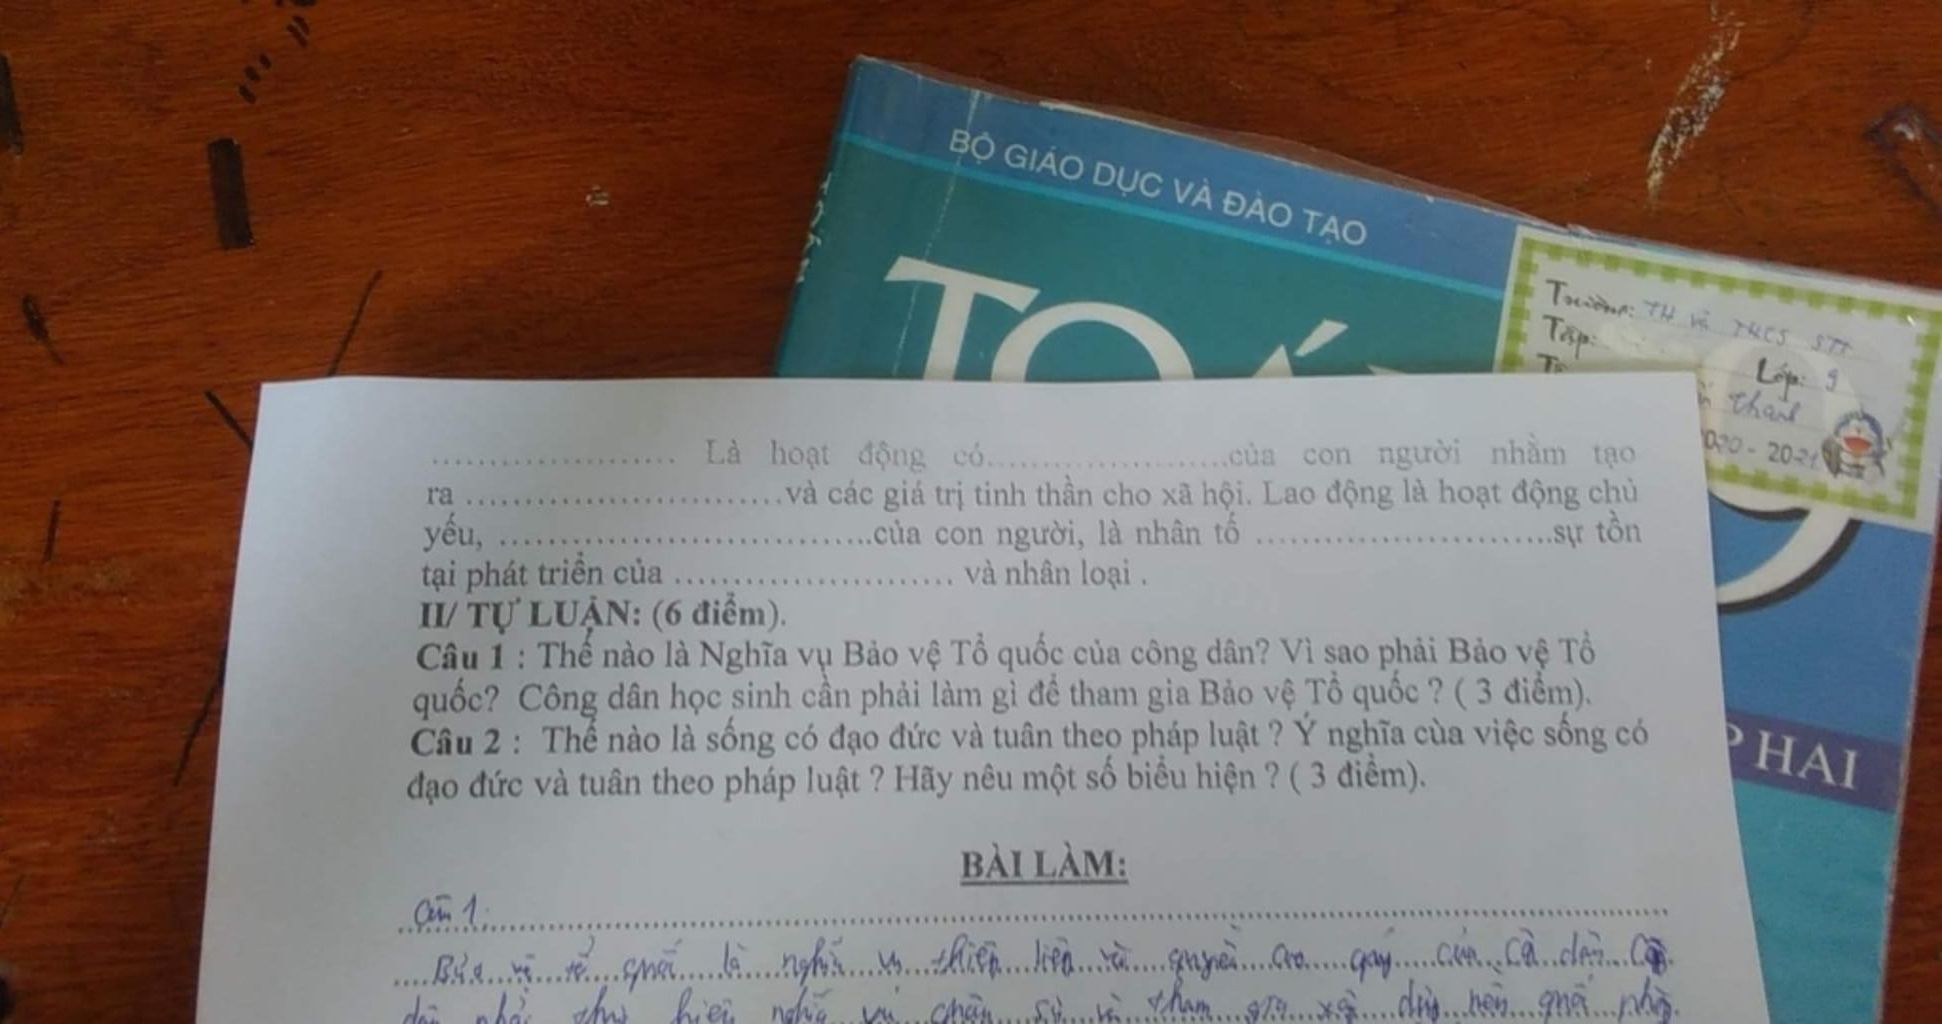 BỘ GIÁO DỤC VÀ ĐÀO TẠO
TOÁ
9
Trường: TH và THCS STT
Tập:
Lớp: 9
Thanh
2020 - 2021
P HAI
.................... Là hoạt động có....................của con người nhằm tạo
ra ..........................và các giá trị tinh thần cho xã hội. Lao động là hoạt động chủ
yếu, ...............................của con người, là nhân tố .........................sự tồn
tại phát triển của ........................ và nhân loại .
II/ TỰ LUẬN: (6 điểm).
Câu 1 : Thế nào là Nghĩa vụ Bảo vệ Tổ quốc của công dân? Vì sao phải Bảo vệ Tổ
quốc? Công dân học sinh cần phải làm gì để tham gia Bảo vệ Tổ quốc ? ( 3 điểm).
Câu 2 : Thế nào là sống có đạo đức và tuân theo pháp luật ? Ý nghĩa của việc sống có
đạo đức và tuân theo pháp luật ? Hãy nêu một số biểu hiện ? ( 3 điểm).
BÀI LÀM:
Câu 1:
Bảo vệ tổ quốc là nghĩa vụ thiêng liêng và quyền cao quý của
dân phải thực hiện nghĩa vụ quân sự và tham gia xây dựng nền quốc phòng